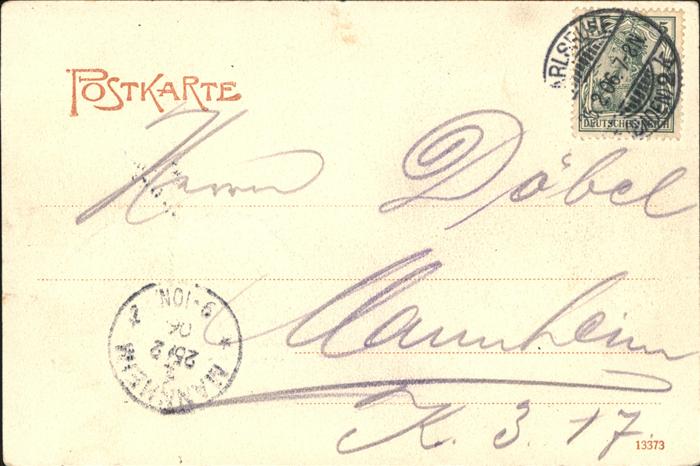 POSTKARTE
5
DEUTSCHES REICH
Herrn Döbel
Mannheim
K. 3. 17.
MANNHEIM
25/2
06
9-10N
13373